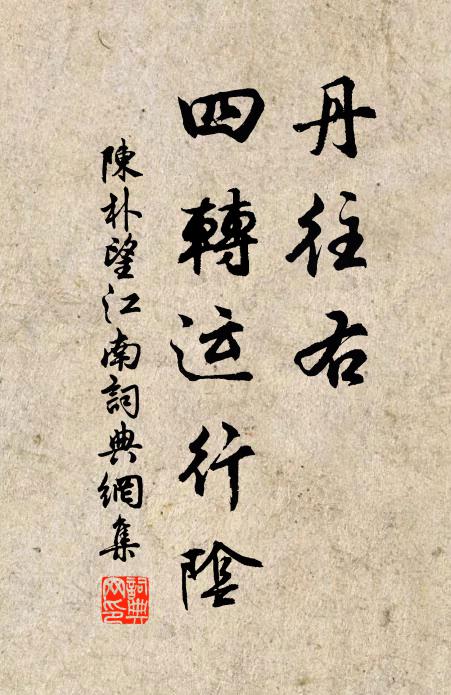 丹往右
四轉运行陰
陳朴望江南詞典網集
詞典网印